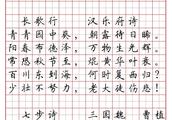 长歌行 汉乐府诗
青青园中葵，朝露待日晞。
阳春布德泽，万物生光辉。
常恐秋节至，焜黄华叶衰。
百川东到海，何时复西归？
少壮不努力，老大徒伤悲！
七步诗 三国魏 曹植